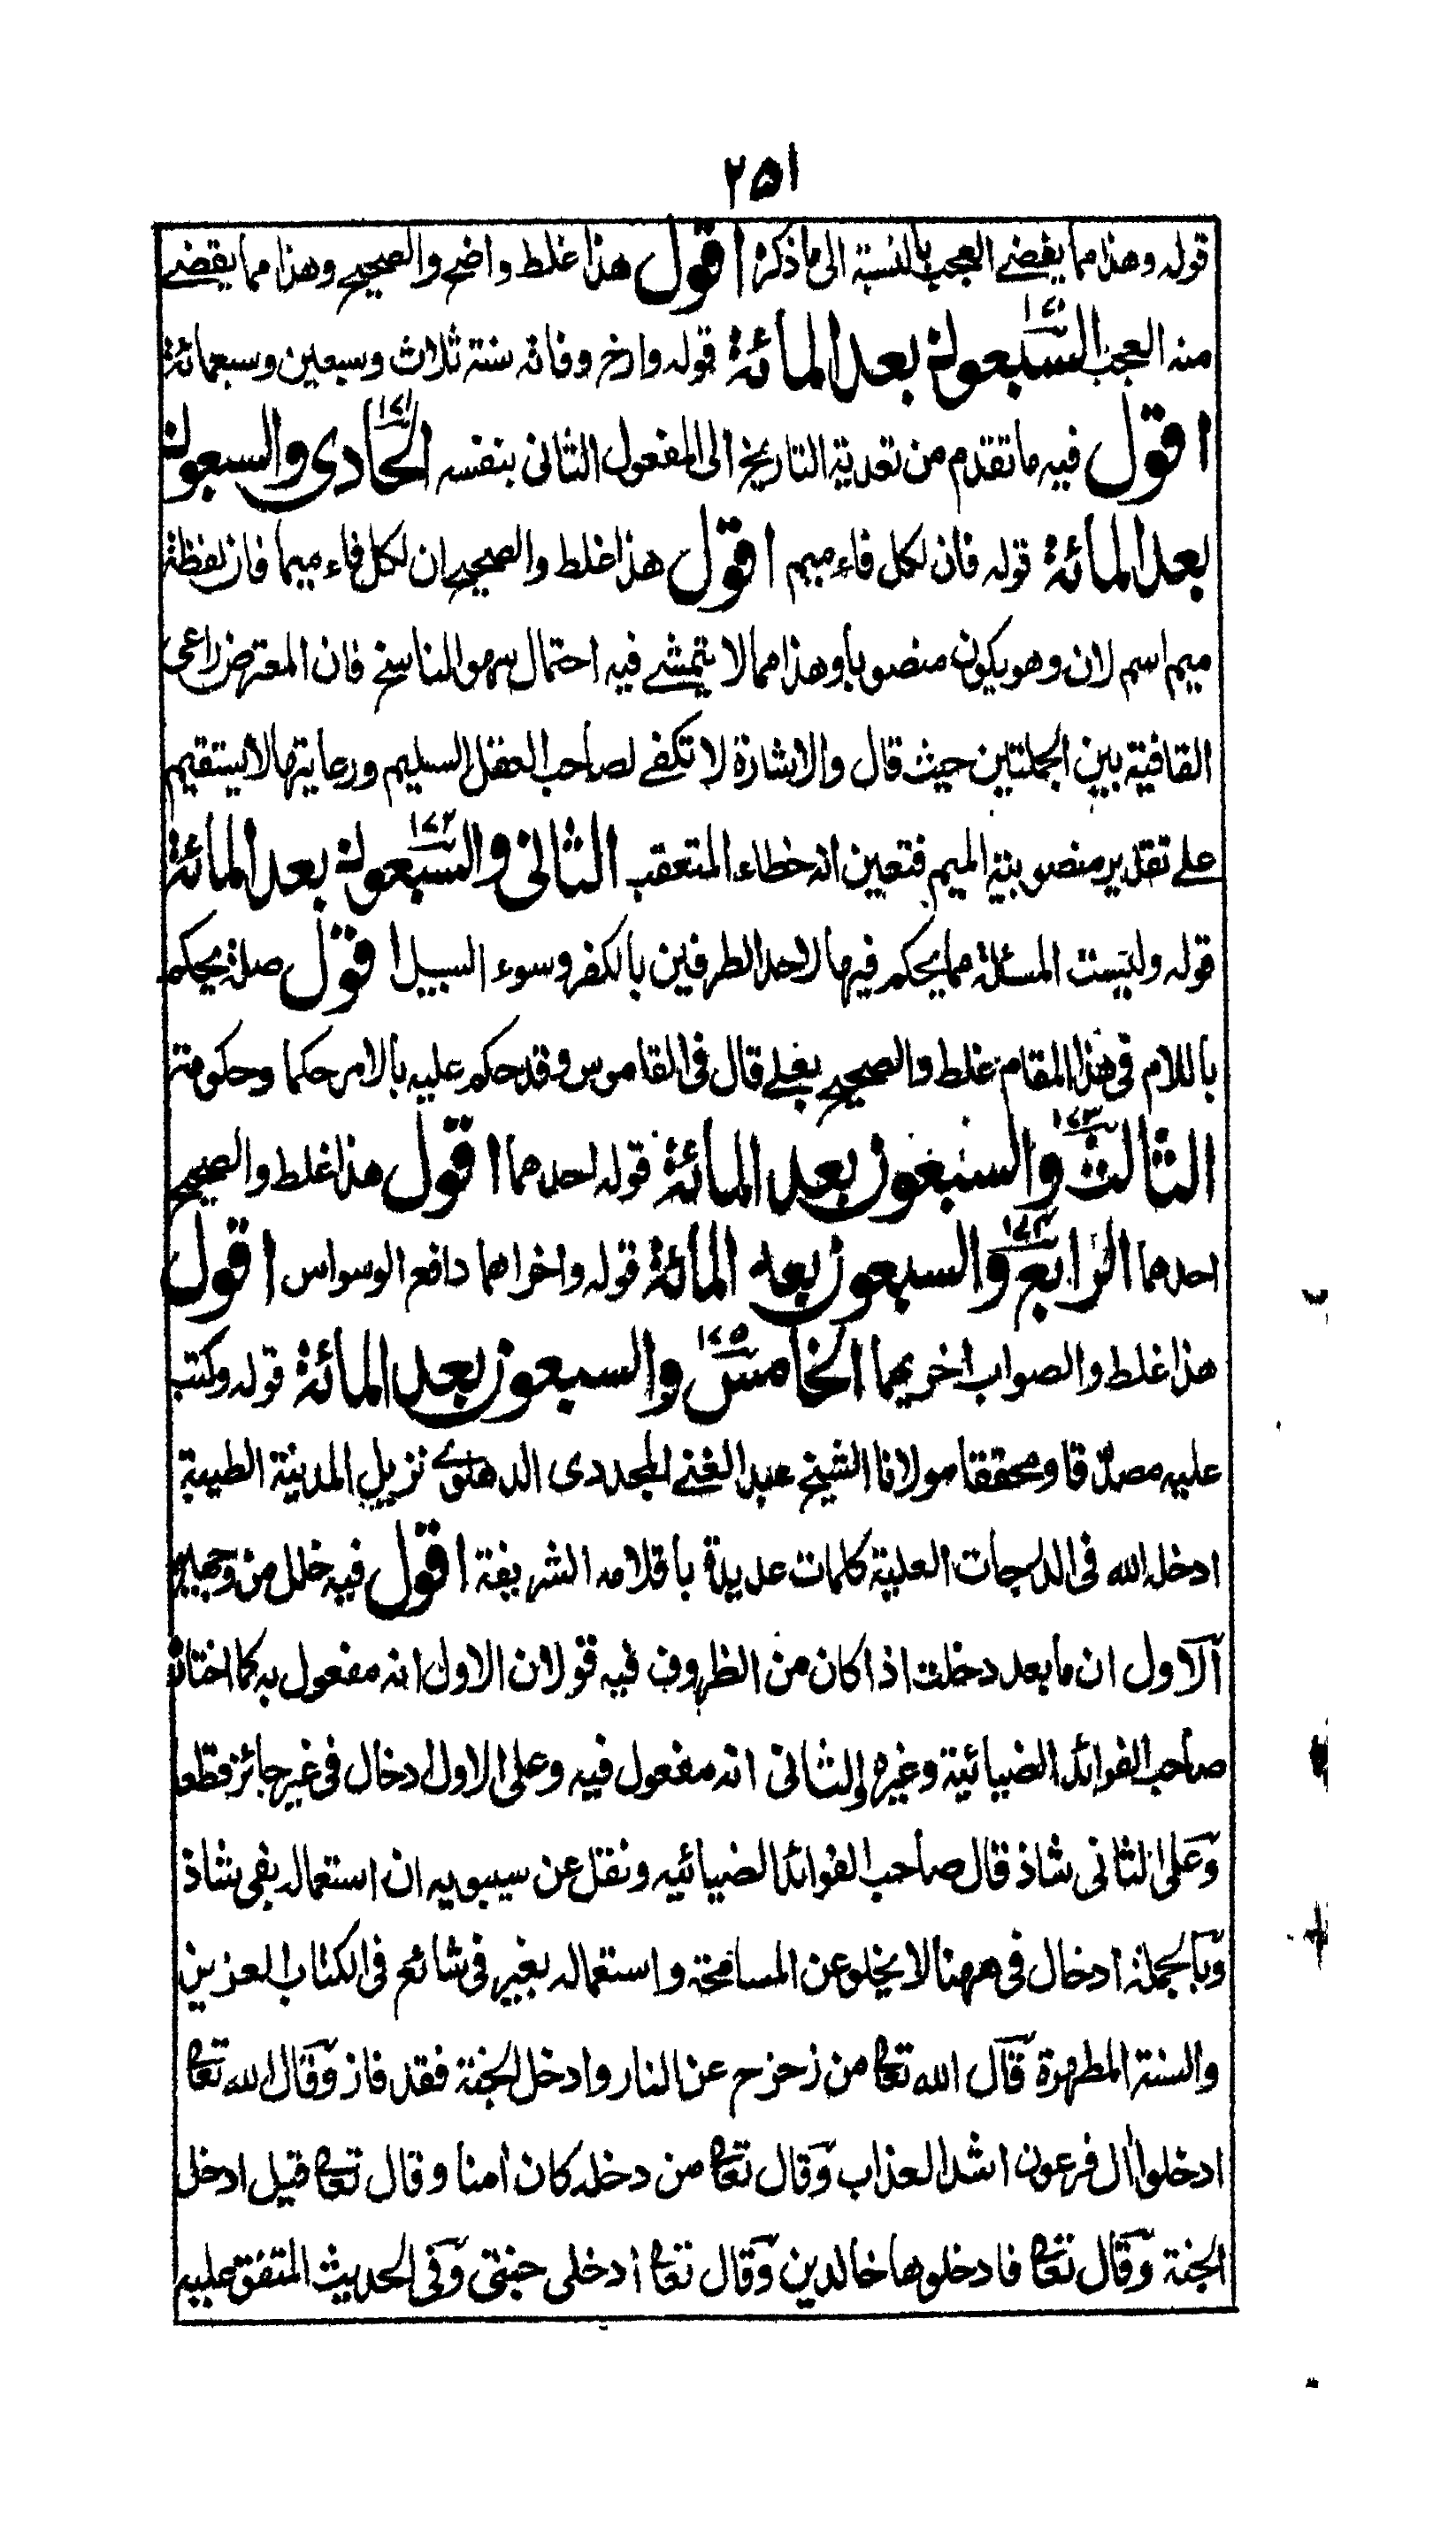 ٢٥١
قوله وهذا مما يقضے العجب بالنسبة الى ما ذكره اقول هذا غلط واضح والصحيح وهذا مما يقضے
١٧٠
منه العجب السبعون بعد المائة قوله وارخ وفاته سنة ثلاث وسبعين وسبعمائة
١٧١
اقول فيه ما تقدم من تعدية التاريخ الى المفعول الثانى بنفسه الحادى والسبعون
بعد المائة قوله فان لكل فاء ميم اقول هذا غلط والصحيح ان لكل فاء ميما فان لفظة
ميم اسم لان وهو يكون منصوبا وهذا مما لا يتمشے فيه احتمال سهو الناسخ فان المعترض راعى
القافية بين الجملتين حيث قال والاشارة لا تكفے لصاحب العقل السليم ورعايتها لا يستقيم
١٧٢
علے تقدير منصوبية الميم فتعين انه خطاء المتعقب الثانى والسبعون بعد المائة
قوله وليست المسئلة مما يحكم فيها لاحد الطرفين بالكفر وسوء السبيل اقول صلة يحكم
باللام فى هذا المقام غلط والصحيح بعلے قال فى القاموس وقد حكم عليه بالامر حكما وحكومة
١٧٣
الثالث والسبعون بعد المائة قوله احدهما اقول هذا غلط والصحيح
١٧٤
احدهما الرابع والسبعون بعد المائة قوله واخراهما دافع الوسواس اقول
١٧٥
هذا غلط والصواب اخريهما الخامس والسبعون بعد المائة قوله وكتب
عليه مصدقا ومحققا مولانا الشيخ عبد الغنے المجددى الدهلوے نزيل المدينة الطيبة
ادخله الله فى الدرجات العلية كلمات عديدة باقلامه الشريفة اقول فيه خلل من وجهين
الاول ان ما بعد دخلت اذا كان من الظروف فيه قولان الاول انه مفعول به كما اختاره
صاحب الفوائد الضيائية وغيره والثانى انه مفعول فيه وعلى الاول ادخال فى غير جائز قطعا
وعلى الثانى شاذ قال صاحب الفوائد الضيائيه ونقل عن سيبويه ان استعماله بفى شاذ
وبالجملة ادخال فى ههنا لا يخلو عن المسامحة واستعماله بغير فى شائع فى الكتاب العزيز
والسنة المطهرة قال الله تعا من زحزح عن النار وادخل الجنة فقد فاز وقال الله تعا
ادخلوا ال فرعون اشد العذاب وقال تعا من دخله كان امنا وقال تعا قيل ادخل
الجنة وقال تعا فادخلوها خالدين وقال تعا ادخلى جنتى وفى الحديث المتفق عليه